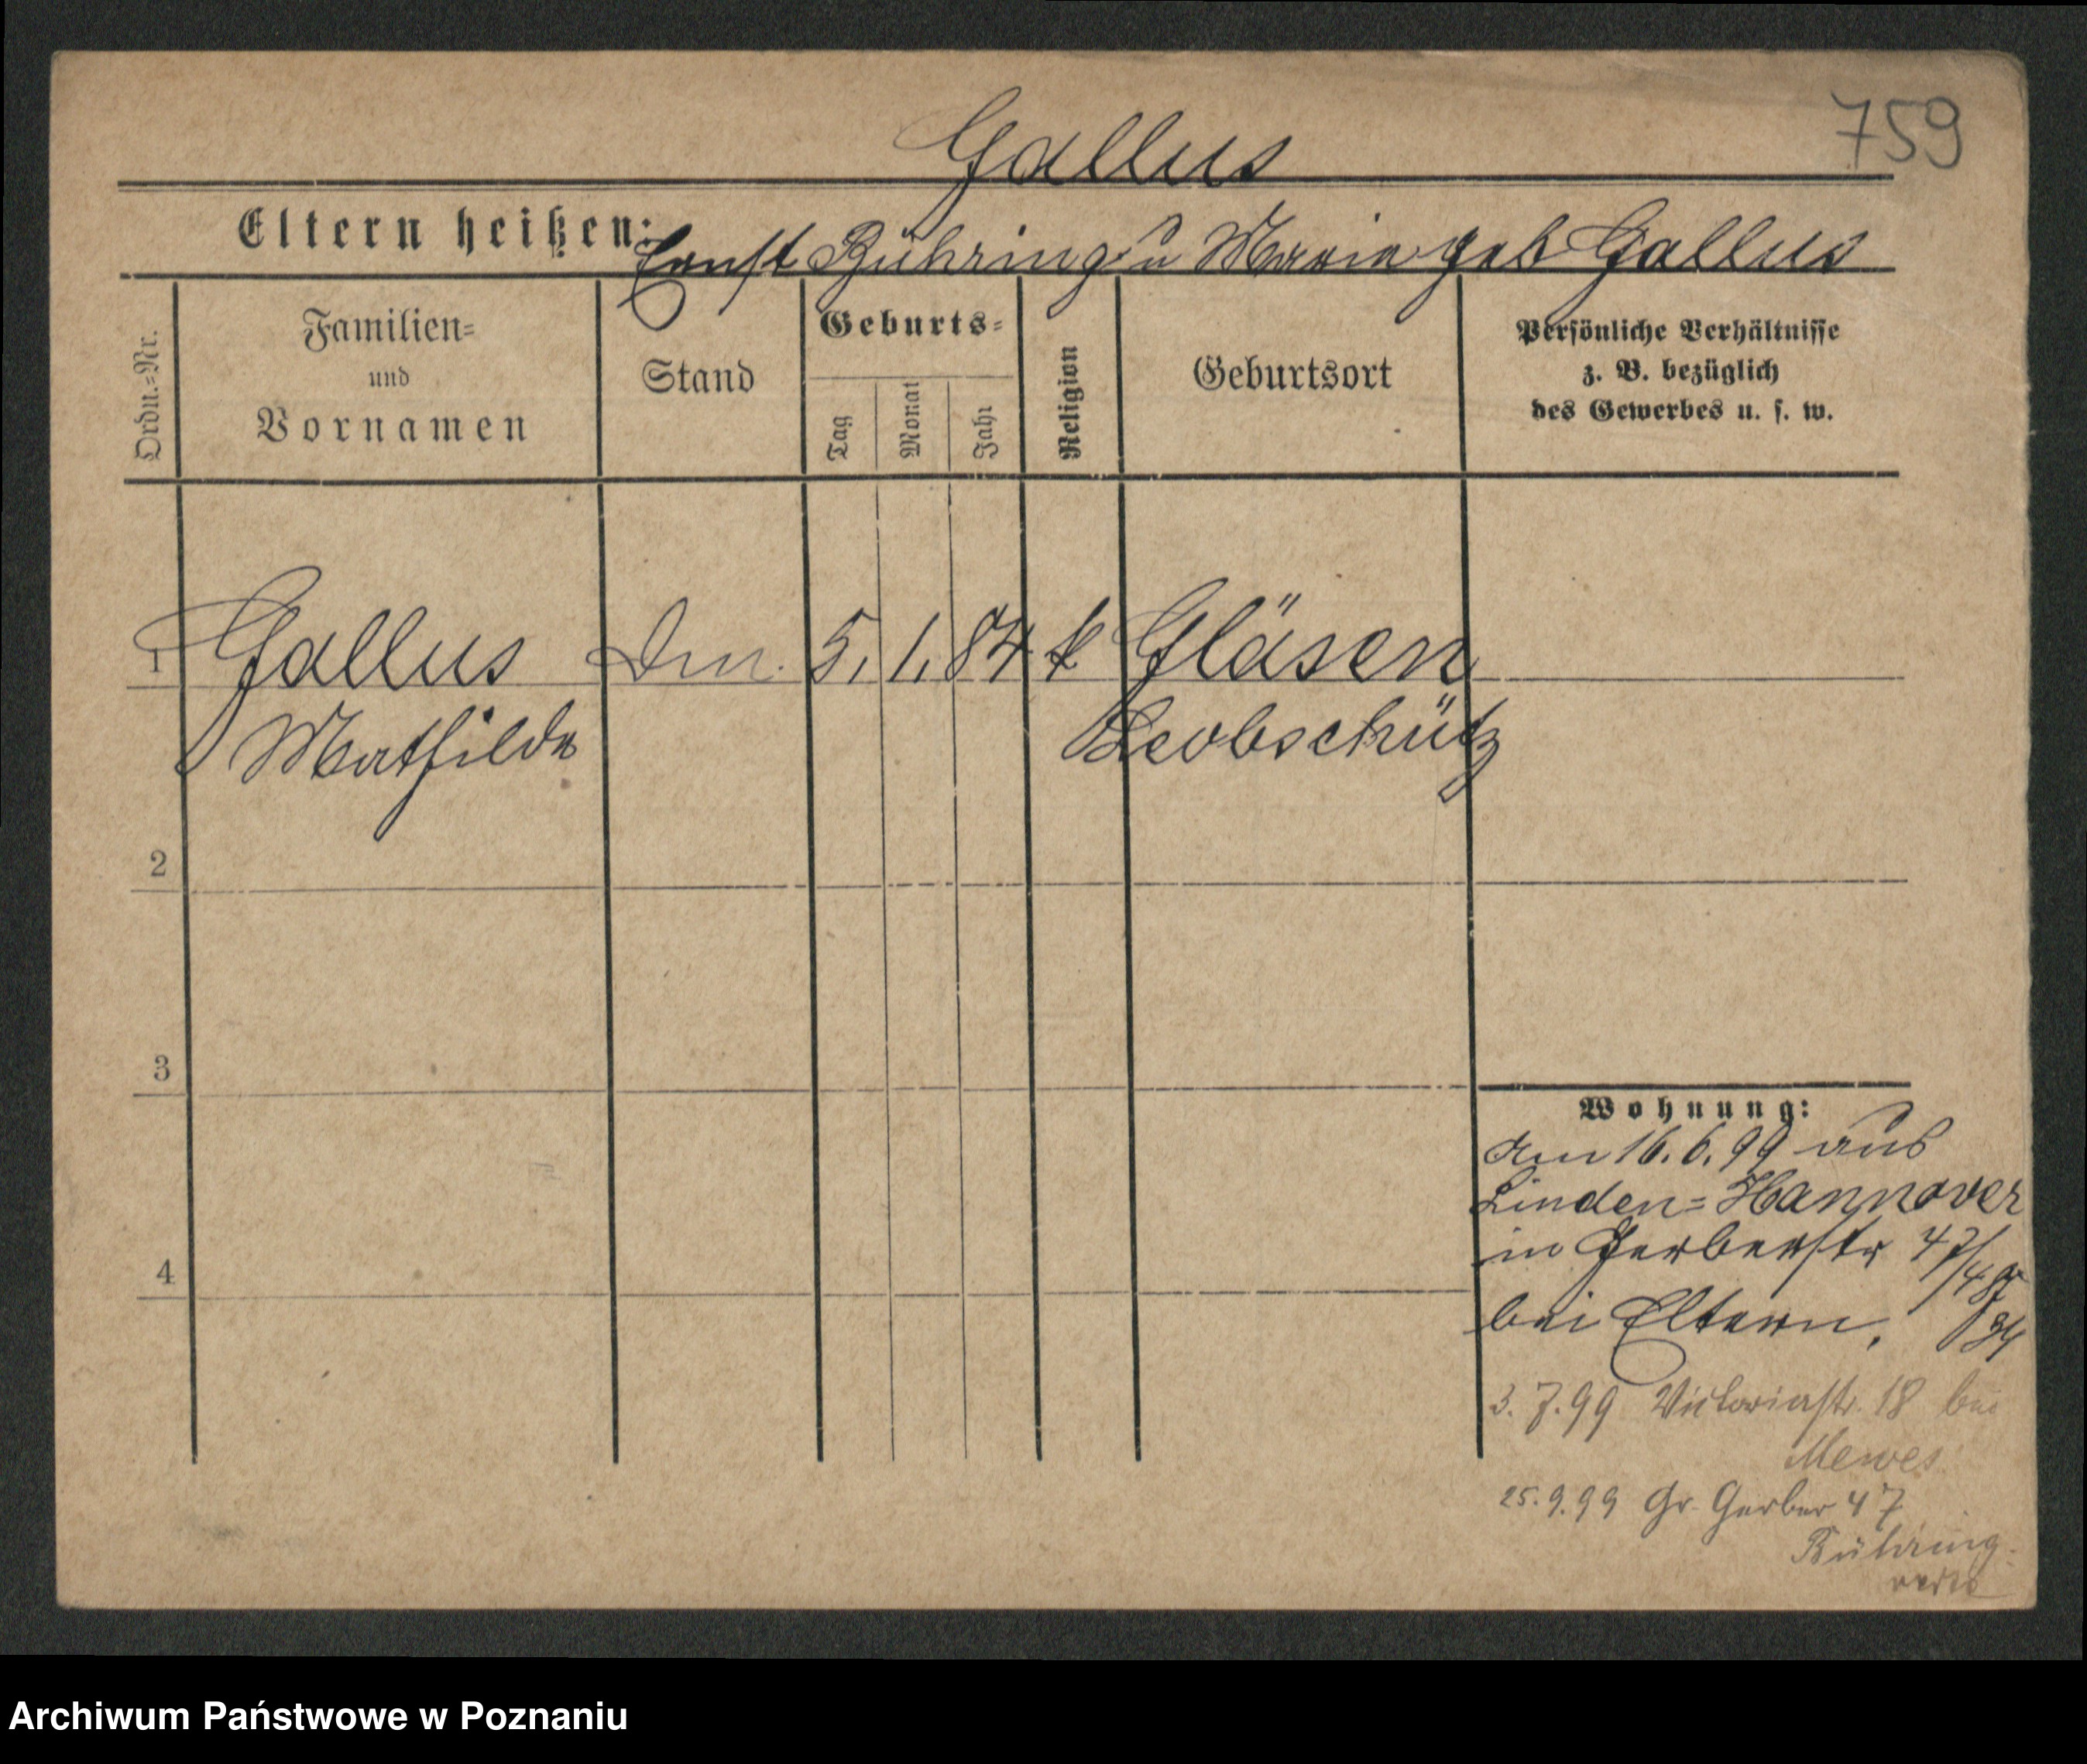 759
Gallus
Eltern heißen: Ernst Bühring u Marie geb Gallus
Ordn.-Nr.
Familien-
und
Vornamen
Stand
Geburts-
Tag
Monat
Jahr
Religion
Geburtsort
Persönliche Verhältnisse
z. B. bezüglich
des Gewerbes u. s. w.
1 Gallus 5. 1. 84 k Gläsen
Mathilde Leobschütz
2
3
4
Wohnung:
Am 16. 6. 99 aus
Linden=Hannover
in Gerberstr 47/48
bei Eltern.
3. 7. 99 Victoriastr. 18 bei
Mewes
25. 9. 99 Gr. Gerber 47
Bühring
Archiwum Państwowe w Poznaniu